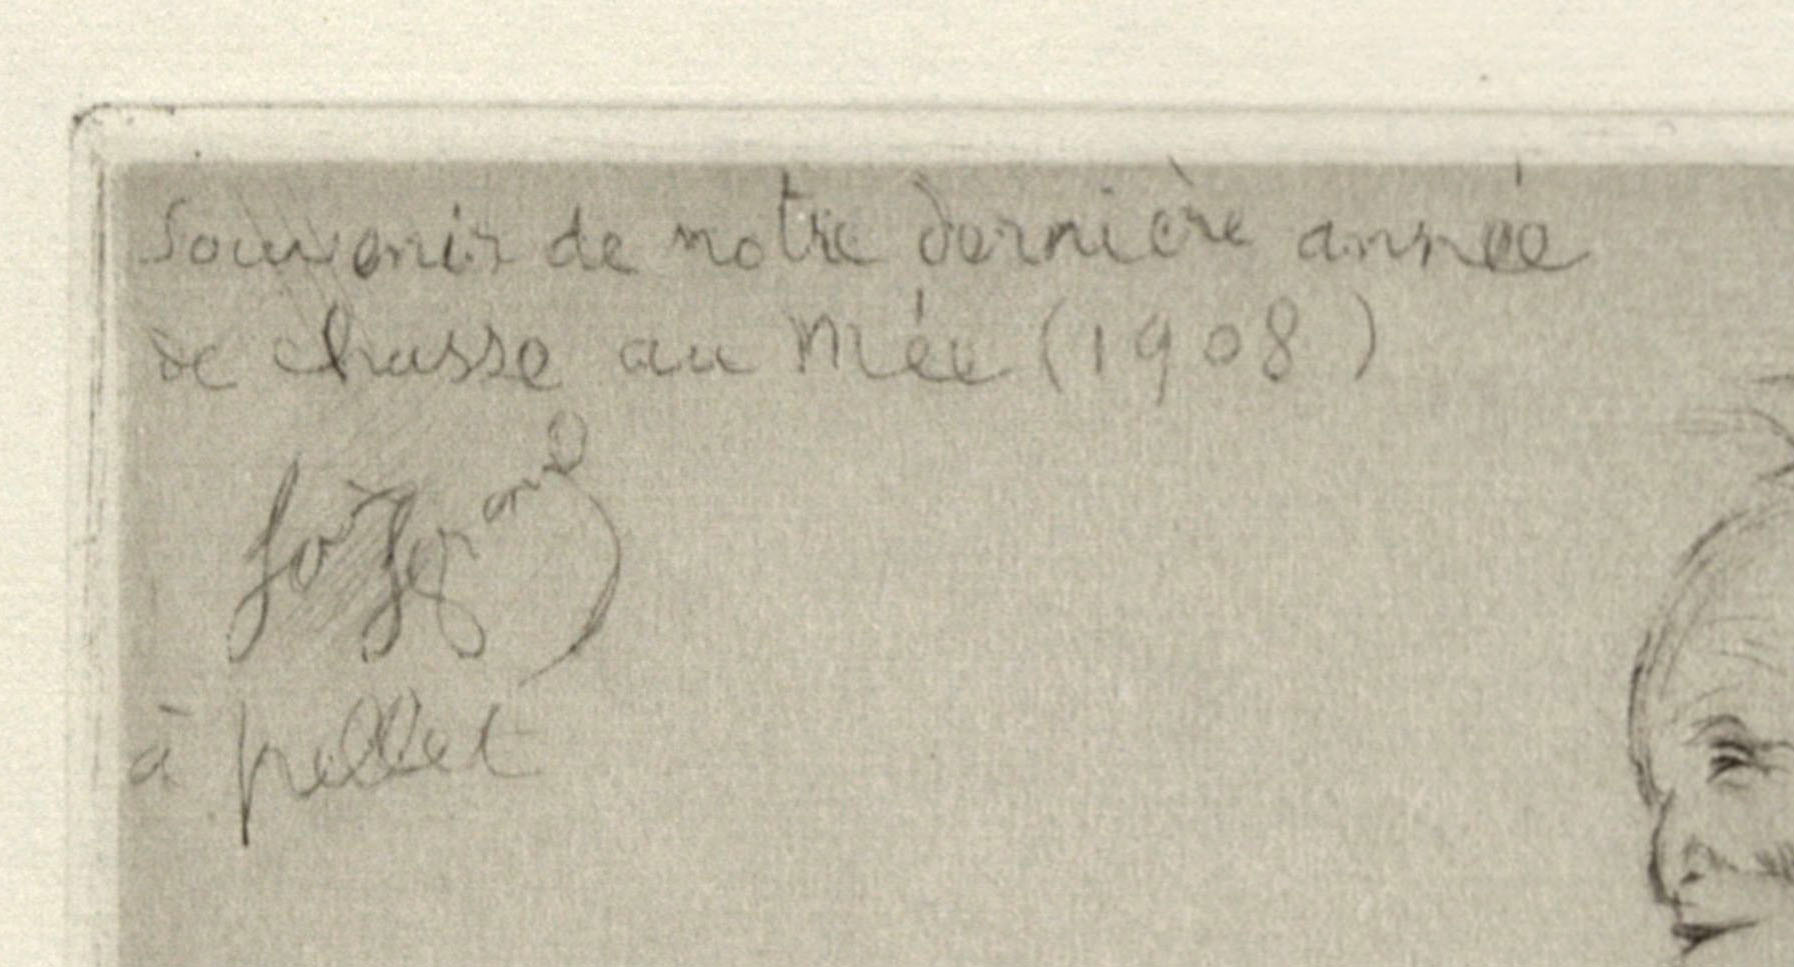 Souvenir de notre dernière année
de chasse au Mée (1908)
à pellet